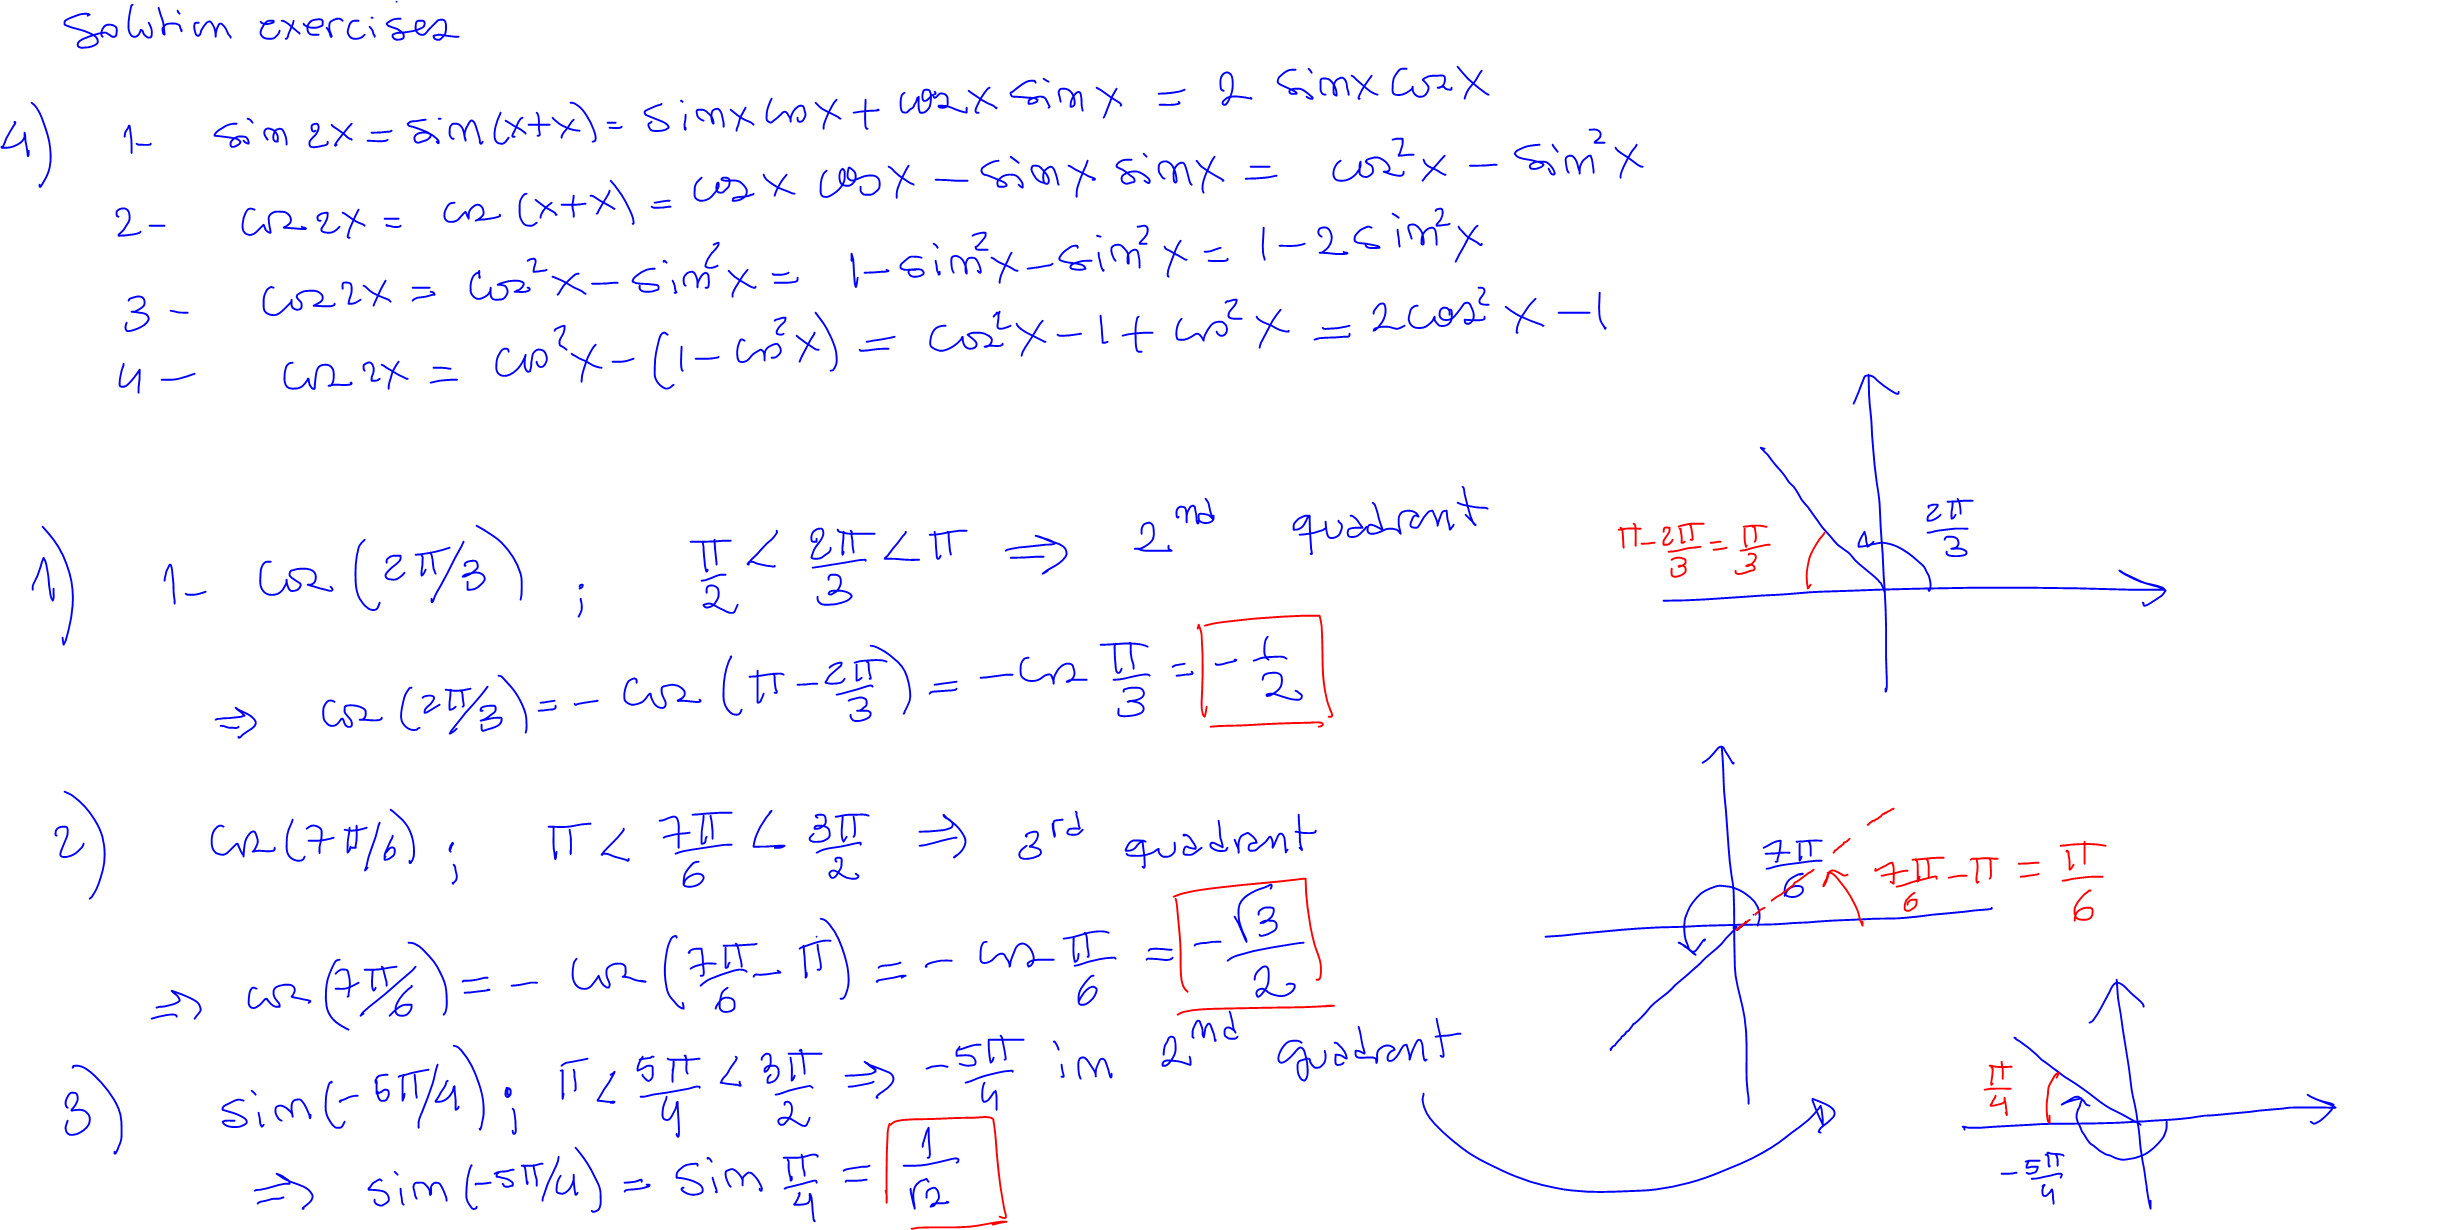 Solution exercises
4) 1- sin 2x = sin(x+x) = sinx cosx + cosx sinx = 2 sinx cosx
2- cos 2x = cos (x+x) = cosx cosx - sinx sinx = cos²x - sin²x
3- cos 2x = cos²x - sin²x = 1 - sin²x - sin²x = 1 - 2 sin²x
4- cos 2x = cos²x - (1 - cos²x) = cos²x - 1 + cos²x = 2cos²x - 1
1) 1- cos (2π/3) ; π/2 < 2π/3 < π ⇒ 2nd quadrant
π - 2π/3 = π/3
2π/3
⇒ cos (2π/3) = - cos (π - 2π/3) = - cos π/3 = -1/2
2) cos (7π/6) ; π < 7π/6 < 3π/2 ⇒ 3rd quadrant
7π/6
7π/6 - π = π/6
⇒ cos (7π/6) = - cos (7π/6 - π) = - cos π/6 = -√3/2
3) sin(-5π/4) ; π < 5π/4 < 3π/2 ⇒ -5π/4 in 2nd quadrant
π/4
-5π/4
⇒ sin (-5π/4) = sin π/4 = 1/√2